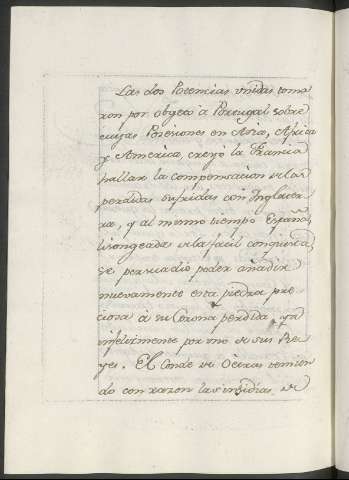 Las dos Potencias unidas toma
ron por obgeto à Portugal sobre
cuyas Posesiones en Asia, Africa
y America, creyó la Francia
hallar la compensacion de las
perdidas sufridas con Inglater
ra, y al mismo tiempo España,
lisongeada de la facil conquista,
se persuadió poder añadir
nuevamente esta piedra pre
ciosa à su Corona perdida ya
infelizmente por uno de sus Re
yes. El Conde de Oeiras temien
do con razon las insidias de